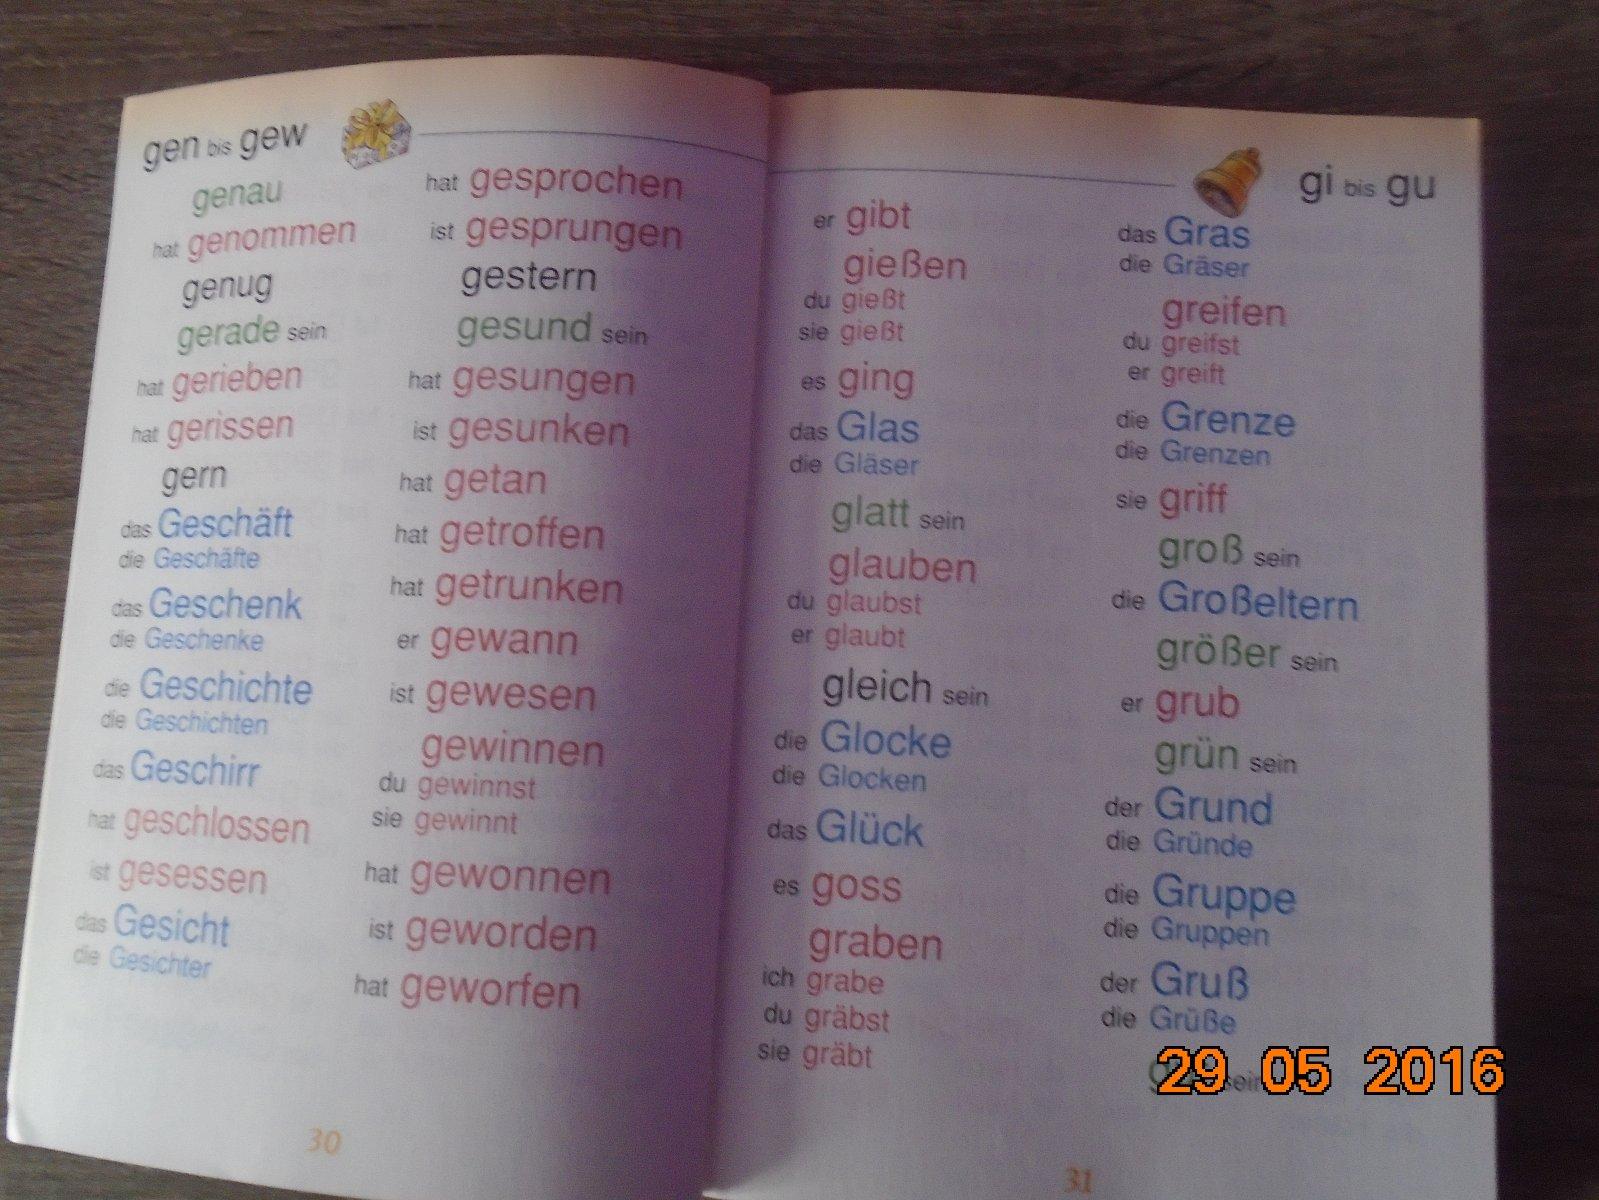 gen bis gew
genau
hat genommen
genug
gerade sein
hat gerieben
hat gerissen
gern
das Geschäft
die Geschäfte
das Geschenk
die Geschenke
die Geschichte
die Geschichten
das Geschirr
hat geschlossen
ist gesessen
das Gesicht
die Gesichter
hat gesprochen
ist gesprungen
gestern
gesund sein
hat gesungen
ist gesunken
hat getan
hat getroffen
hat getrunken
er gewann
ist gewesen
gewinnen
du gewinnst
sie gewinnt
hat gewonnen
ist geworden
hat geworfen
30
gi bis gu
er gibt
gießen
du gießt
sie gießt
es ging
das Glas
die Gläser
glatt sein
glauben
du glaubst
er glaubt
gleich sein
die Glocke
die Glocken
das Glück
es goss
graben
ich grabe
du gräbst
sie gräbt
das Gras
die Gräser
greifen
du greifst
er greift
die Grenze
die Grenzen
sie griff
groß sein
die Großeltern
größer sein
er grub
grün sein
der Grund
die Gründe
die Gruppe
die Gruppen
der Gruß
die Grüße
sein
31
29 05 2016